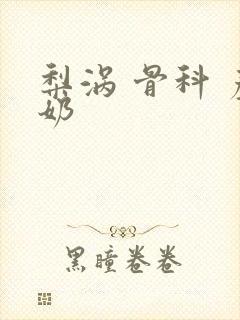 梨涡 骨科
奶
黑瞳卷卷